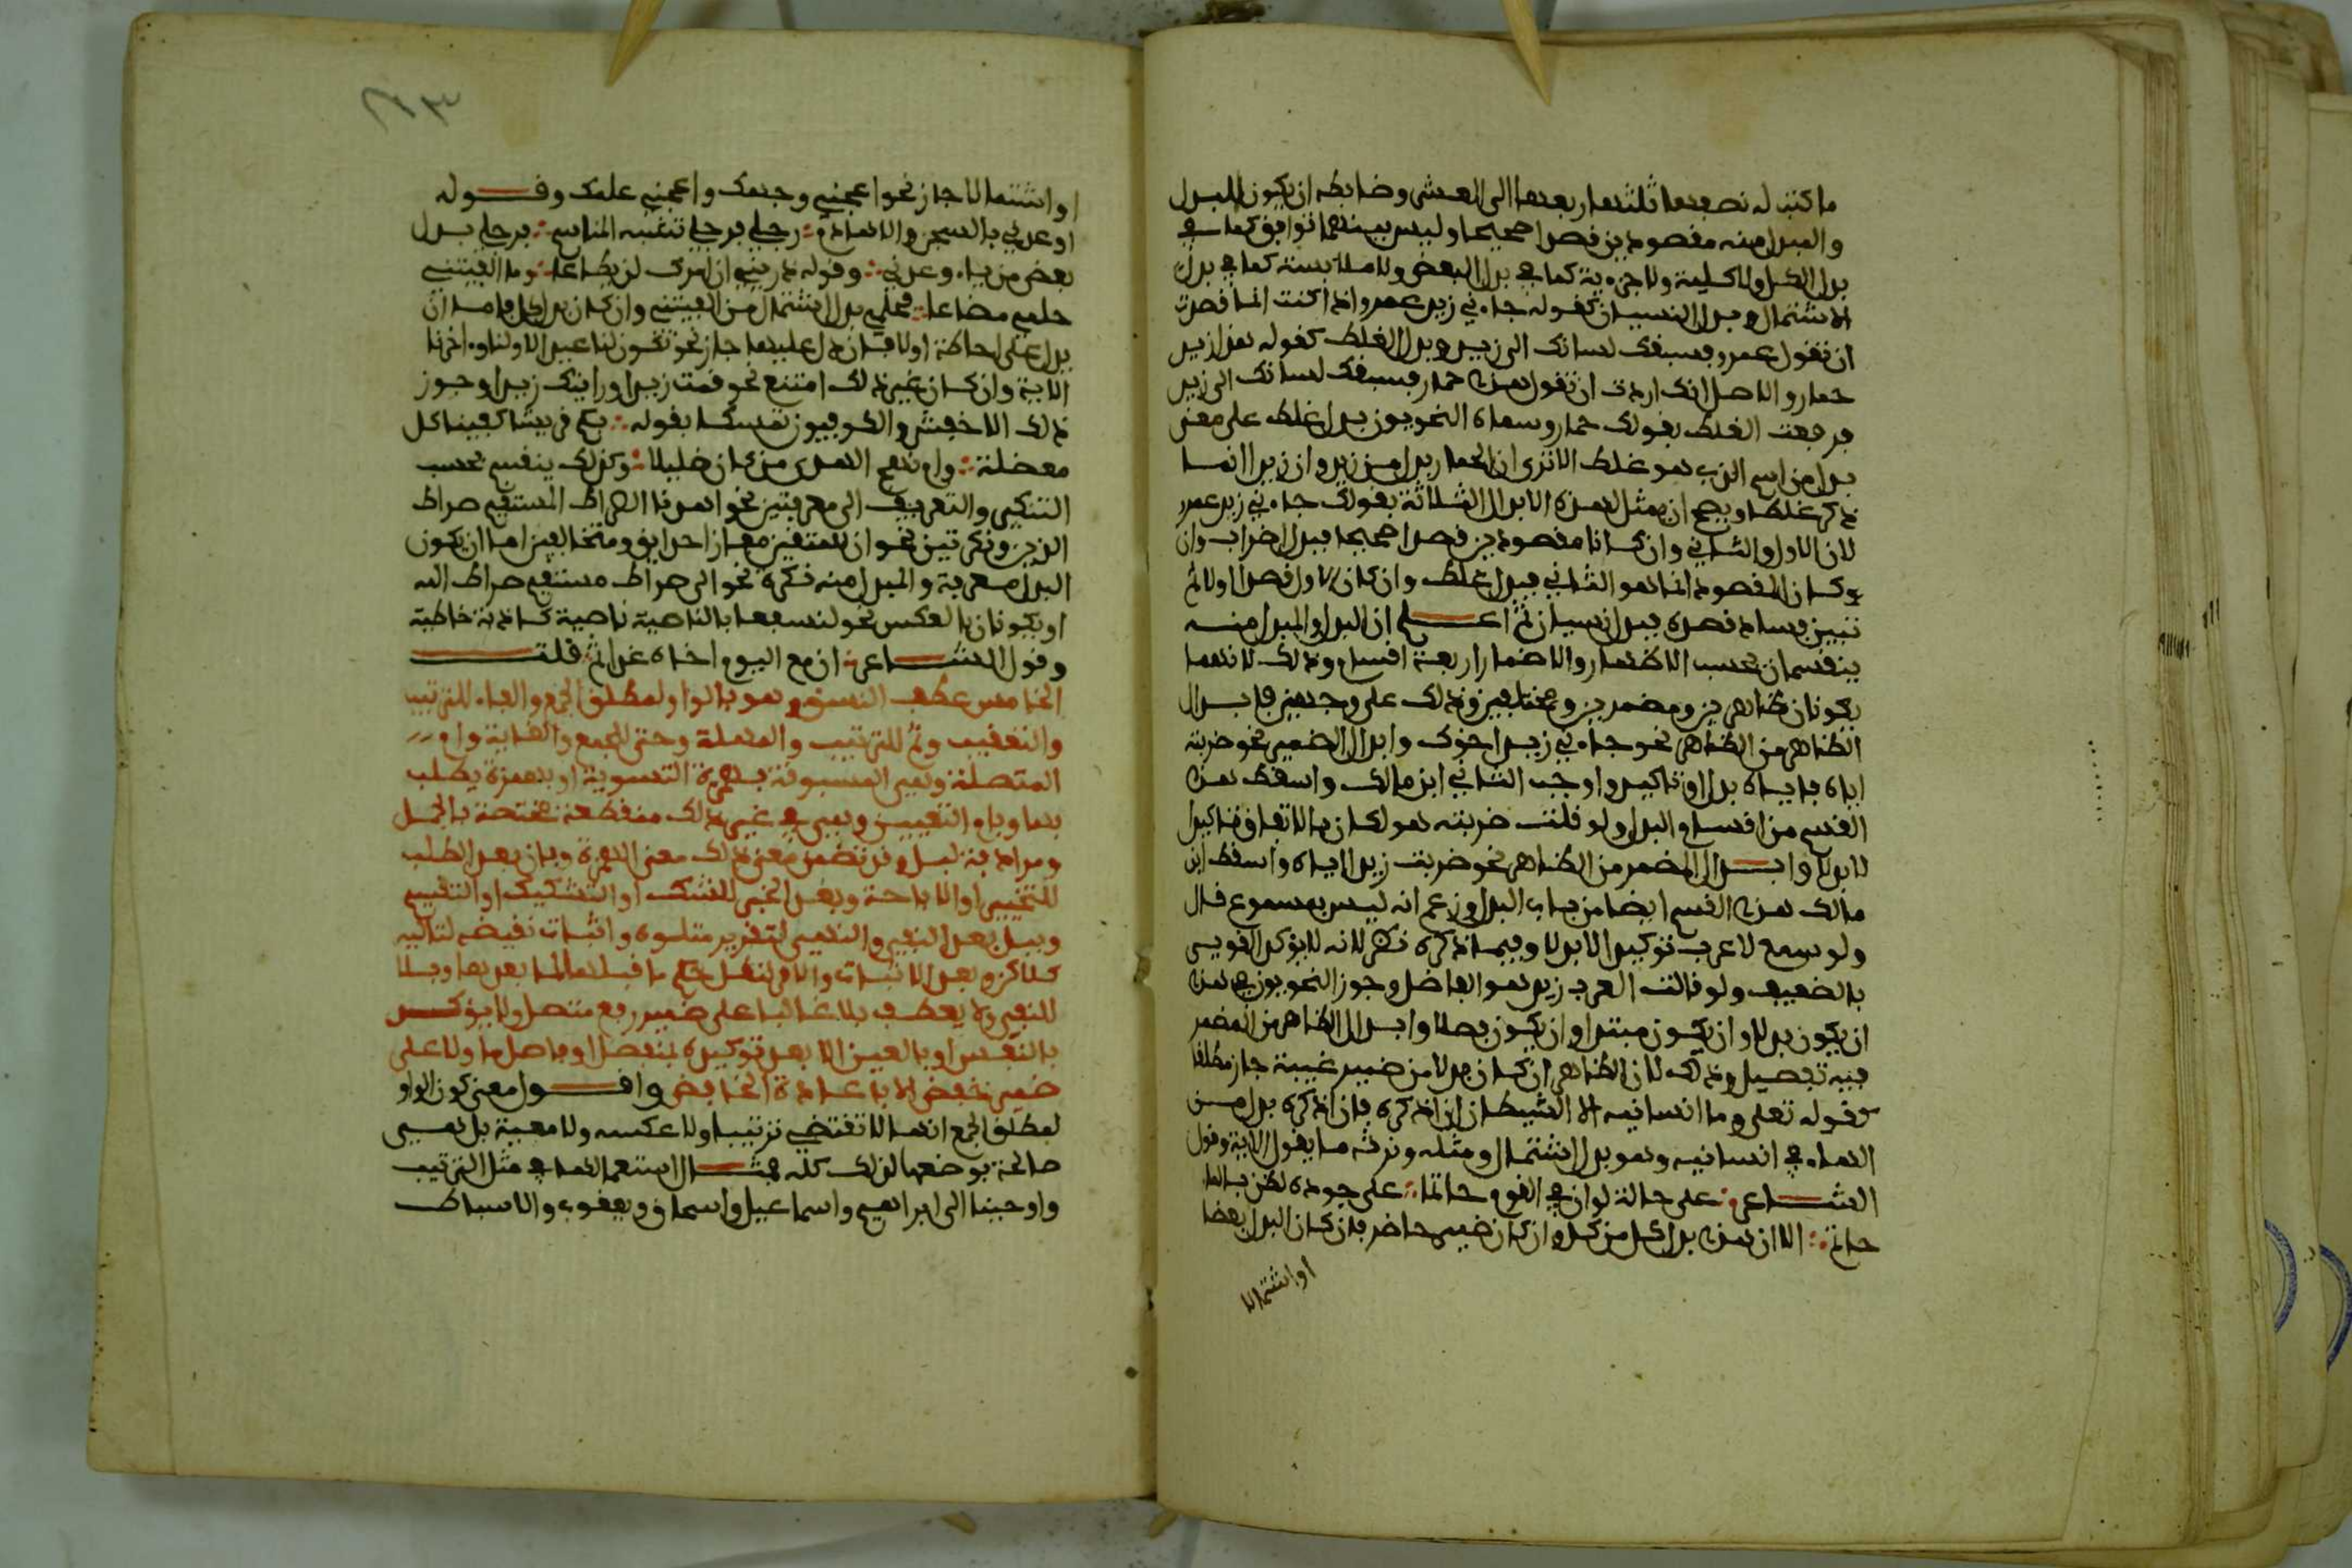 ما كتب له نصفها ثلثها ربعها الى العشر وضابطه ان يكون البدل
والمبدل منه مقصودين قصدا صحيحا وليس بينهما توافق كما في
بدل الكل ولا كلية ولا جزءية كما في بدل البعض ولا ملابسة كما في بدل
الاشتمال وبدل النسيان كقوله جاءني زيد عمرو اذا كنت انما قصدت
ان تقول عمرو فسبقك لسانك الى زيد وبدل الغلط كقوله هذا زيد
حمار والاصل انك اردت ان تقول هذا حمار فسبقك لسانك الى زيد
فرفعت الغلط بقولك حمار وسماه النحويون بدل غلط على معنى
بدل من اسم الذي هو غلط الا ترى ان الحمار بدل من زيد وان زيدا انما
ذكر غلطا ويصح ان يمثل لهذه الابدال الثلاثة بقولك جاءني زيد عمرو
لان الاول والثاني وان كانا مقصودين قصدا صحيحا فبدل اضراب وان
وكان المقصود انما هو الثاني فبدل غلط وان كان الاول قصد اولا ثم
تبين فساد قصده فبدل نسيان ثم اعلم ان البدل والمبدل منه
ينقسمان بحسب الاظهار والاضمار اربعة اقسام وذلك لانهما
يكونان ظاهرين ومضمرين ومختلفين وذلك على وجهين فابدال
الظاهر من الظاهر نحو جاءني زيد اخوك وابدال الضمير نحو ضربته
اياه فاياه بدل او تاكيد واوجب الثاني ابن مالك واسقط هذا
القسم من اقسام البدل ولو قلت ضربته هو لكان بالاتفاق تاكيدا
لا بدلا وابدال المضمر من الظاهر نحو ضربت زيدا اياه واسقط ابن
مالك هذا القسم ايضا من باب البدل وزعم انه ليس بمسموع قال
ولو سمع لاعرب توكيدا لا بدلا وفيما ذكره نظر لانه لا يؤكد القوي
بالضعيف ولو قالت العرب زيد هو الفاضل وجوز النحويون في هذا
ان يكون بدلا وان يكون مبتدا وان يكون فصلا وابدال الظاهر من المضمر
فيه تفصيل وذلك لان الظاهر ان كان بدلا من ضمير غيبة جاز مطلقا
كقوله تعلى وما انسانيه الا الشيطان ان اذكره فان اذكره بدل من
الهاء في انسانيه وهو بدل اشتمال ومثله ونرثه ما يقول الاية وقول
الشاعر على حالة لو ان في القوم حاتما على جوده لضن بالماء
حاتم الا ان هذا بدل كل من كل وان كان ضمير حاضر فان كان البدل بعضا
او اشتمالا
او اشتمالا جاز نحو اعجبني وجهك واعجبني علمك وقوله
اوعدني بالسجن والاداهم رجلي فرجلي شثنة المناسم فرجلي بدل
بعض من ياء وعدني وقوله ذريني ان امرك لن يطاعا وما الفيتني
حلمي مضاعا فحلمي بدل اشتمال من الفيتني وان كان بدل كل فاما ان
يدل على احاطة اولا فان دل عليها جاز نحو تكون لنا عيدا لاولنا واخرنا
الاية وان كان غير ذلك امتنع نحو قمت زيد او رايتك زيدا وجوز
ذلك الاخفش والكوفيون تمسكا بقوله بكم قريش كفينا كل
معضلة وام نهج الهدى من كان ضليلا وكذلك ينقسم بحسب
التنكير والتعريف الى معرفتين نحو اهدنا الصراط المستقيم صراط
الذين ونكرتين نحو ان للمتقين مفازا حدايق ومتخالفين اما ان يكون
البدل معرفة والمبدل منه نكرة نحو الى صراط مستقيم صراط الله
او يكونان بالعكس نحو لنسفعا بالناصية ناصية كاذبة خاطية
وقول الشاعر ان مع اليوم اخاه غدا ثم قلت
الخامس عطف النسق وهو بالواو لمطلق الجمع والفاء للترتيب
والتعقيب وثم للترتيب والمهلة وحتى للجمع والغاية وام
المتصلة وهي المسبوقة بهمزة التسوية او بهمزة يطلب
بها وبام التعيين وهي في غير ذلك منقطعة مختصة بالجمل
ومرادفة لبل وقد تضمن معنى ذلك معنى الهمزة وباو بعد الطلب
للتخيير او الاباحة وبعد الخبر للشك او التشكيك او التقسيم
وببل بعد النفي والنهي لتقرير متلوه واثبات نقيضه لتاليه
كلاكن وبعد الاثبات والامر لنقل حكم ما قبلها لما بعدها وبلا
للنفي ولا يعطف بلا غالبا على ضمير رفع متصل ولا يؤكد
بالنفس او بالعين الا بعد توكيده بمنفصل او فاصل ما ولا على
ضمير خفض الا باعادة الخافض واقول معنى كون الواو
لمطلق الجمع انها لا تقتضي ترتيبا ولا عكسه ولا معية بل هي
صالحة بوضعها لذلك كله فمثال استعمالها في مثل الترتيب
واوحينا الى ابراهيم واسماعيل واسحاق ويعقوب والاسباط